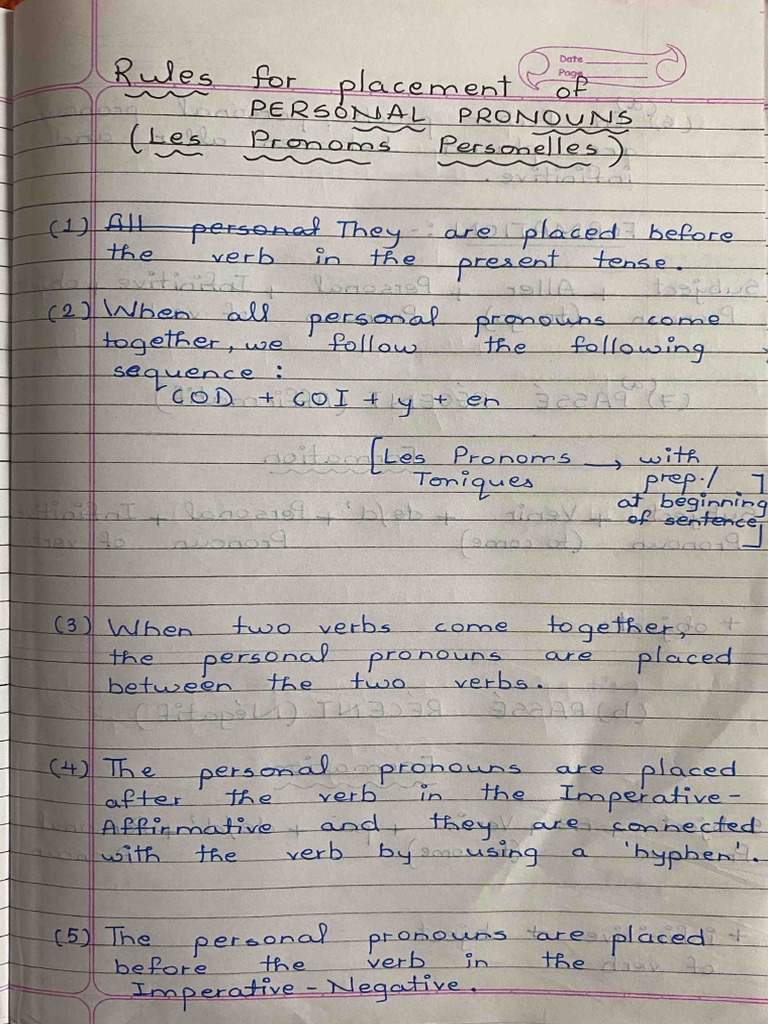 Date
Page
Rules for placement of
PERSONAL PRONOUNS
(Les Pronoms Personelles)
(1) All personal They are placed before
the verb in the present tense.
(2) When all personal pronouns come
together, we follow the following
sequence :
COD + COI + y + en
[Les Pronoms → with
Toniques prep./ ]
at beginning
of sentence]
(3) When two verbs come together,
the personal pronouns are placed
between the two verbs.
(4) The personal pronouns are placed
after the verb in the Imperative-
Affirmative and they are connected
with the verb by using a 'hyphen'.
(5) The personal pronouns are placed
before the verb in the
Imperative-Negative.